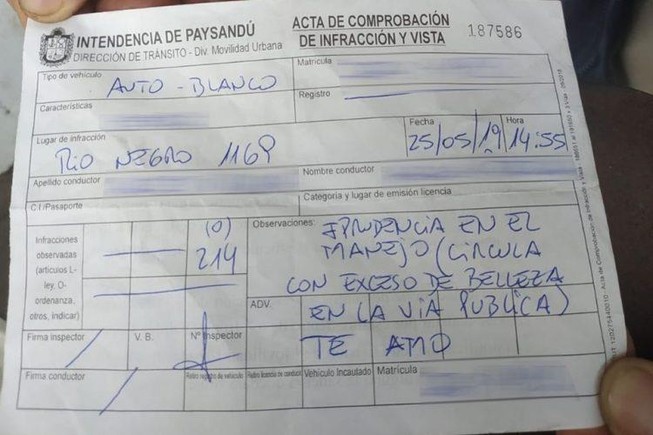 INTENDENCIA DE PAYSANDÚ
DIRECCIÓN DE TRÁNSITO - Div. Movilidad Urbana
ACTA DE COMPROBACIÓN
DE INFRACCIÓN Y VISTA
187586
Tipo de vehículo
AUTO - BLANCO
Matrícula
Registro
Características
Lugar de infracción
RIO NEGRO 1169
Fecha
25/05/19
Hora
14:55
Apellido conductor
Nombre conductor
C.I/Pasaporte
Categoría y lugar de emisión licencia
Infracciones
observadas
(artículos L-
ley, O-
ordenanza,
otros, indicar)
(O)
214
Observaciones:
EN EL
MANEJO (CIRCULA
CON EXCESO DE BELLEZA
EN LA VIA PUBLICA)
TE AMO
ADV.
Firma inspector
V. B.
Nº Inspector
Firma conductor
Retiro registro de vehículo
Retiro licencia de conducir
Vehículo Incautado
Matrícula